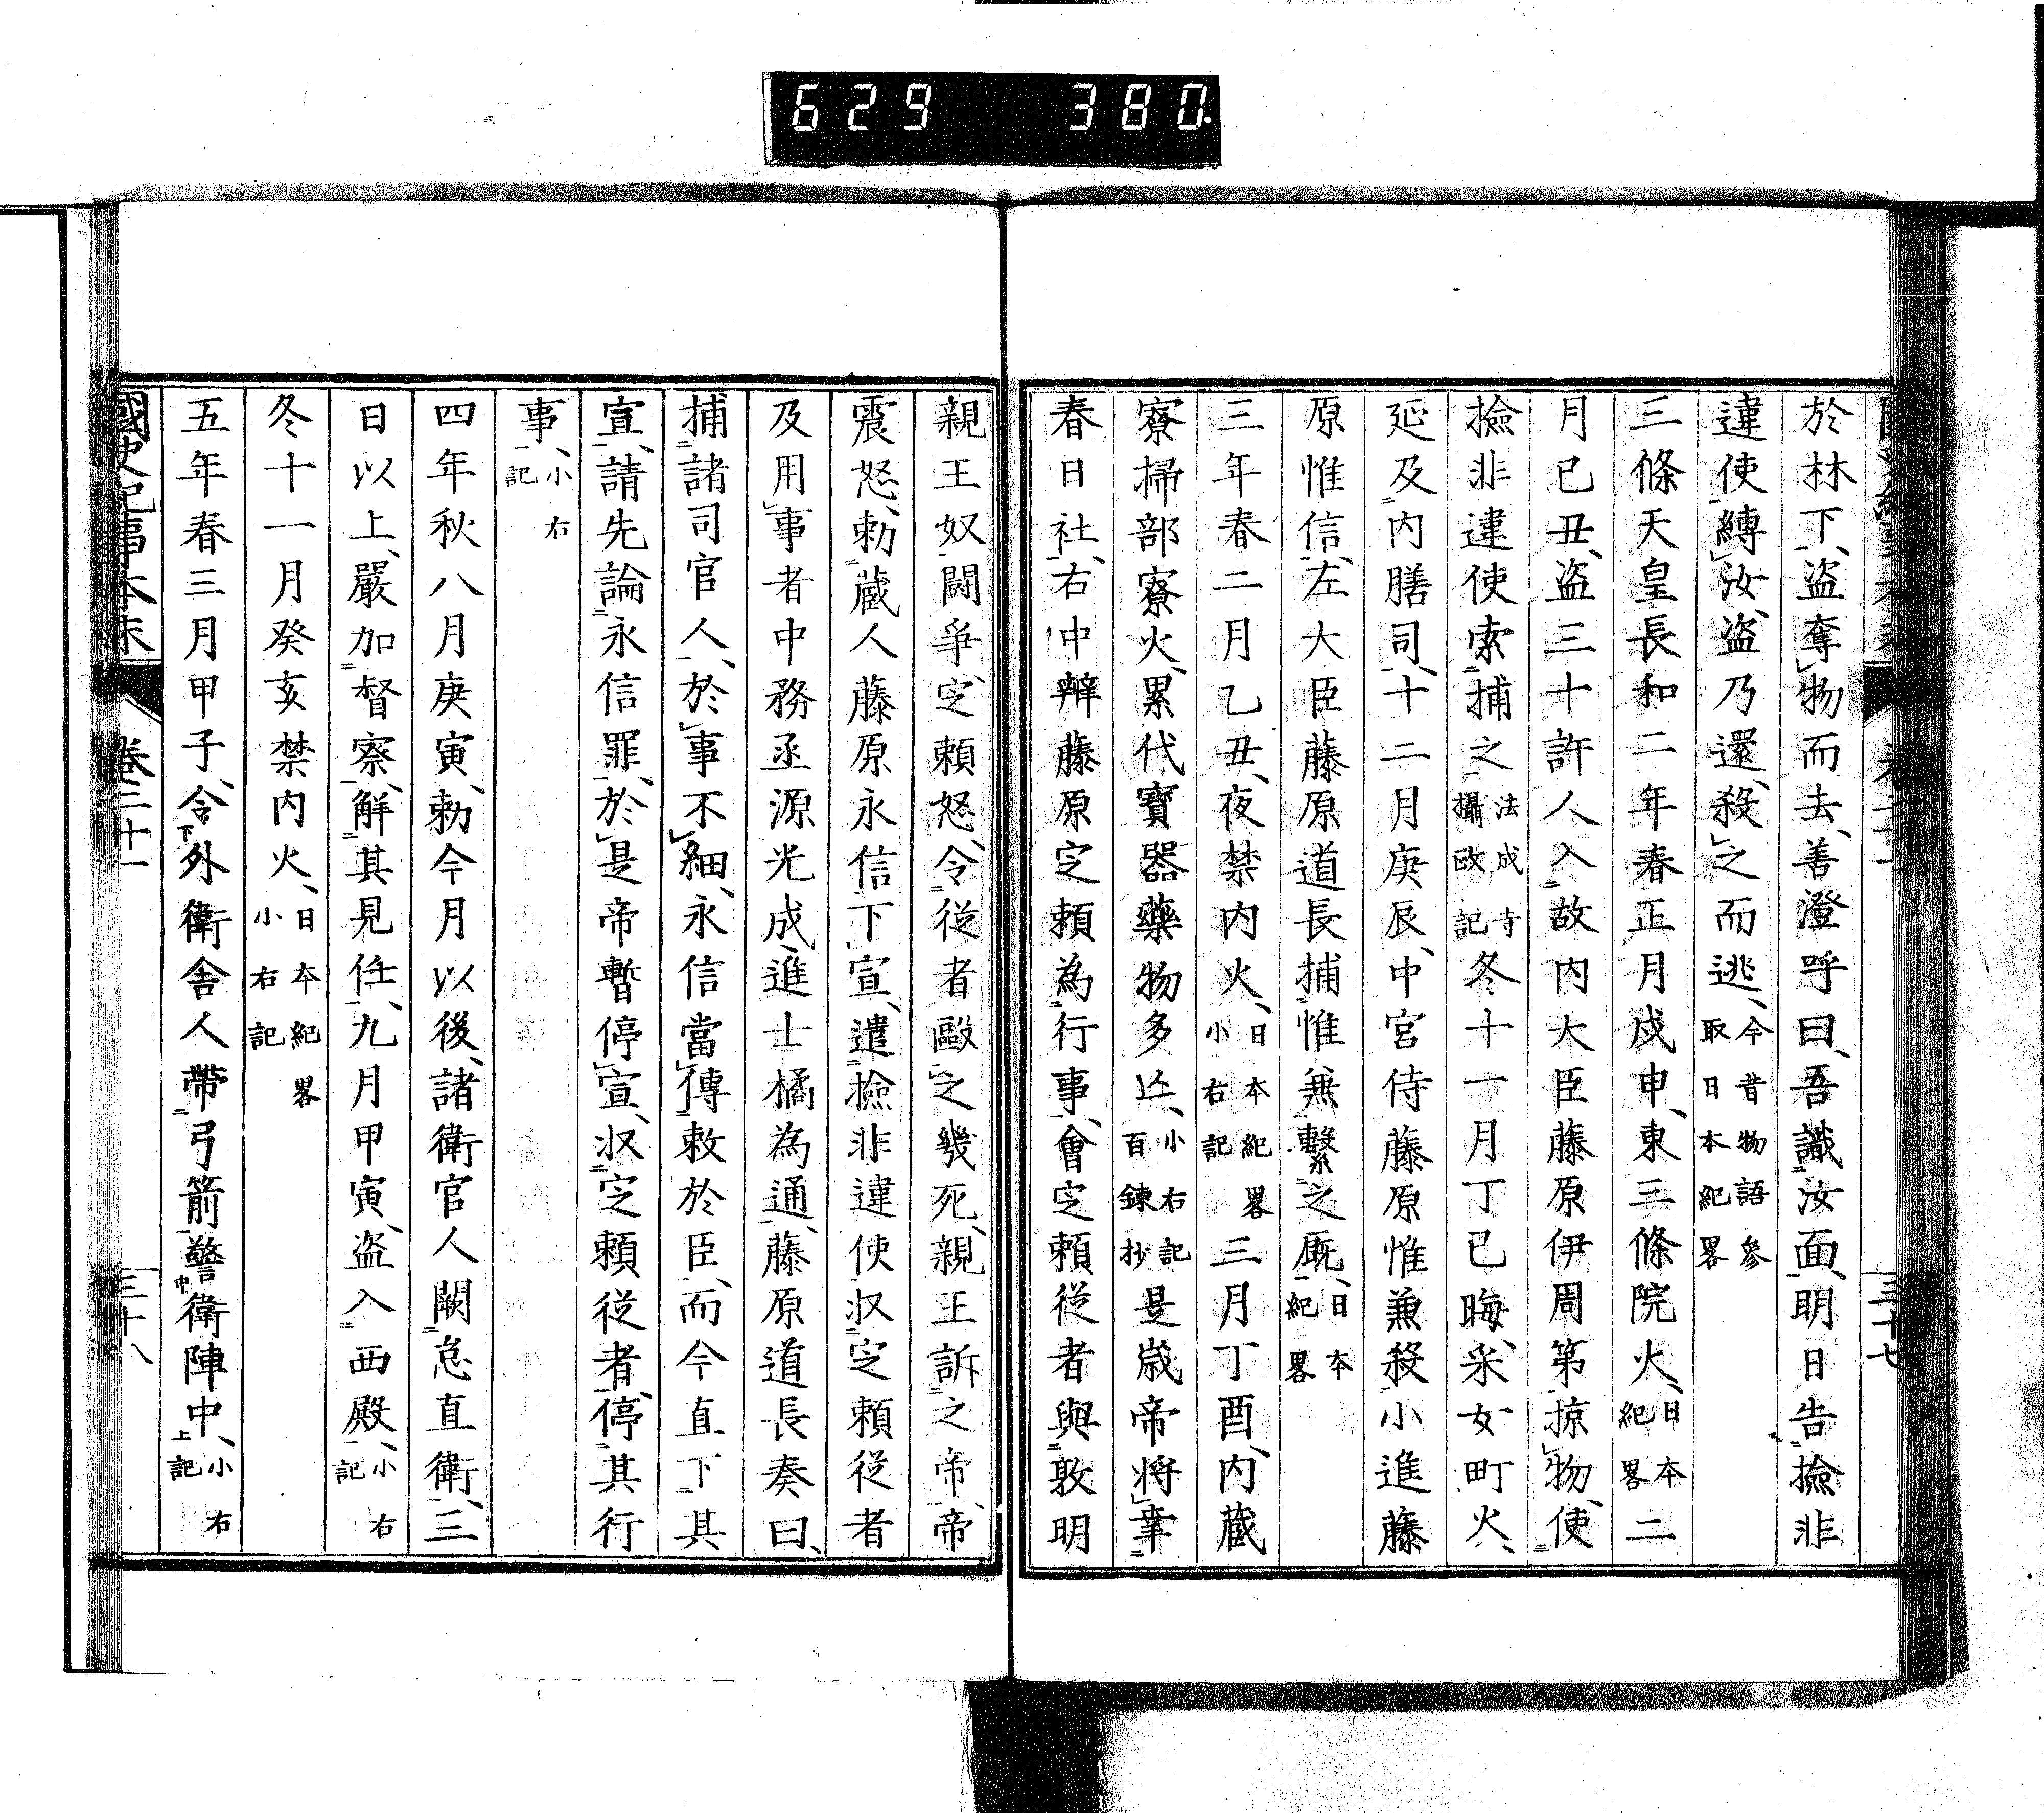 629 380.
三十七
於林下、盜奪物而去、善澄呼曰、吾識汝面、明日告撿非
違使縛汝、盜乃還、殺之而逃、今昔物語參取日本紀畧
三條天皇長和二年春正月戍申、東三條院火、日本紀畧二
月已丑、盜三十許人入故內大臣藤原伊周第掠物、使
撿非違使索捕之法成寺攝政記冬十一月丁已晦、采女町火、
延及內膳司、十二月庚辰、中宮侍藤原惟兼殺小進藤
原惟信、左大臣藤原道長捕惟兼繫之厩、日本紀畧
三年春二月乙丑、夜禁內火、日本紀畧小右記三月丁酉、內藏
寮掃部寮火、累代寶器藥物多亾、小右記百鍊抄是歲帝將幸
春日社、右中辨藤原定賴為行事、會定賴從者與敦明
親王奴鬪爭、定賴怒、令從者毆之幾死、親王訴之帝、帝
震怒、勅藏人藤原永信下宣、遣撿非違使収定賴從者
及用事者中務丞源光成、進士橘為通、藤原道長奏曰、
捕諸司官人、於事不細、永信當傳敕於臣、而今直下其
宣、請先論永信罪、於是帝暫停宣、収定賴從者、停其行
事、小右記
四年秋八月庚寅、勅今月以後、諸衛官人闕怠直衛、三
日以上、嚴加督察、解其見任、九月甲寅、盜入西殿、小右記
冬十一月癸亥禁內火、日本紀畧小右記
五年春三月甲子、令外衛舍人帶弓箭警衛陣中、小右記
國史紀事本末 卷二十一 三十八